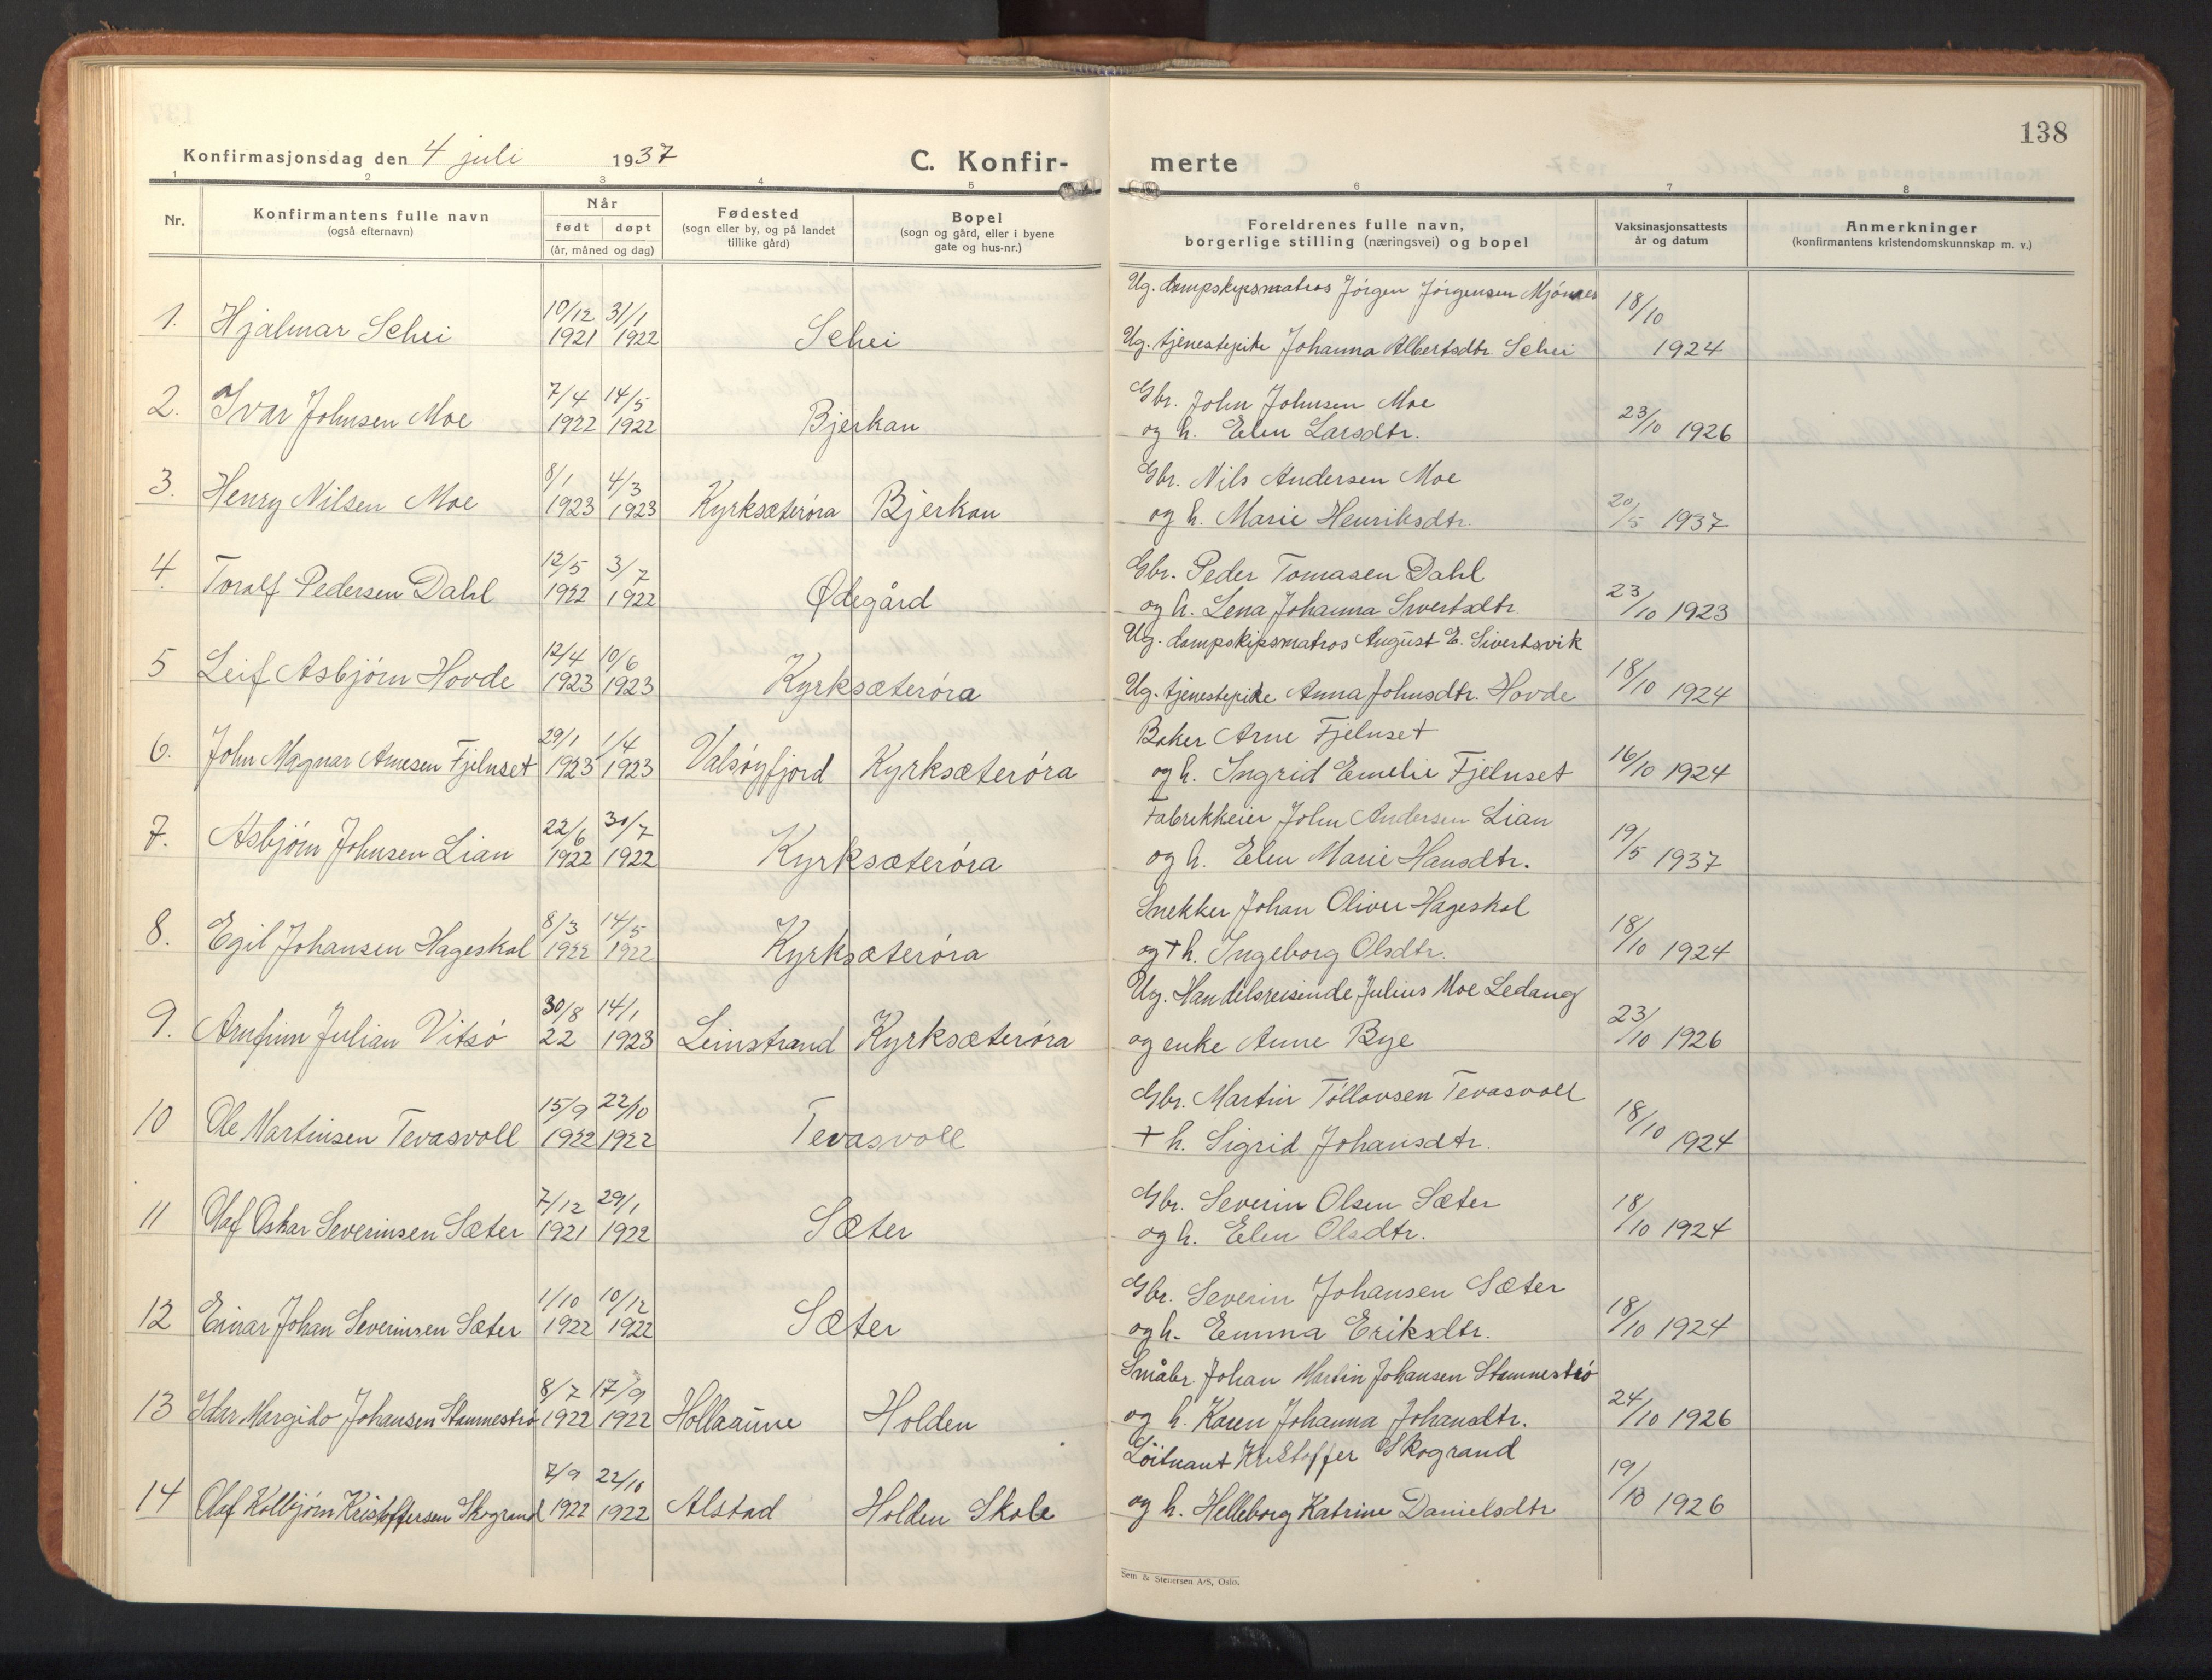 138
Konfirmasjonsdag den 4 juli 1937
C. Konfir- merte
1 2 3 4 5 6 7 8
Nr.
Konfirmantens fulle navn
(også efternavn)
Når
født døpt
(år, måned og dag)
Fødested
(sogn eller by, og på landet
tillike gård)
Bopel
(sogn og gård, eller i byene
gate og hus-nr.)
Foreldrenes fulle navn,
borgerlige stilling (næringsvei) og bopel
Vaksinasjonsattests
år og datum
Anmerkninger
(konfirmantens kristendomskunnskap m. v.)
10/12 31/1 Ug. dampskipsmatros Jörgen Jörgensen Mjönnes 18/10
1. Hjalmar Schei 1921 1922 Schei Ug. tjenestepike Johanna Albertsdtr. Schei 1924
7/4 14/5 Gbr. John Johnsen Moe
2. Ivar Johnsen Moe 1922 1922 Bjerkan og h. Elen Larsdtr. 23/10 1926
8/1 4/3 Gbr. Nils Andersen Moe
3. Henry Nilsen Moe 1923 1923 Kyrksæteröra Bjerkan og h. Marie Henriksdtr. 20/5 1937
12/5 3/7 Gbr. Peder Tomasen Dahl
4. Toralf Pedersen Dahl 1922 1922 Ødegård og h. Lena Johanna Sivertsdtr. 23/10 1923
12/4 10/6 Ug. dampskipsmatros August E. Sivertsvik
5 Leif Asbjörn Hovde 1923 1923 Kyrksæteröra Ug. tjenestepike Anna Johnsdtr. Hovde 18/10 1924
29/1 1/4 Baker Arne Fjelnset
6. John Magnar Arnesen Fjelnset 1923 1923 Valsöyfjord Kyrksæteröra og h. Ingrid Emelie Fjelnset 16/10 1924
22/6 30/7 Fabrikkeier John Andersen Lian
7. Asbjörn Johnsen Lian 1922 1922 Kyrksæteröra og h. Elen Marie Hansdtr. 19/5 1937
8/3 14/5 Snekker Johan Oliver Hageskal
8. Egil Johansen Hageskal 1922 1922 Kyrksæteröra og † h. Ingeborg Olsdtr. 18/10 1924
30/8 14/1 Ug. Handelsreisende Julius Moe Ledang
9. Arnfinn Julian Vitsö 22 1923 Leinstrand Kyrksæteröra og enke Anne Bye 23/10 1926
15/9 22/10 Gbr. Martin Töllovsen Tevasvoll
10 Ole Martinsen Tevasvoll 1922 1922 Tevasvoll † h. Sigrid Johansdtr. 18/10 1924
7/12 29/1 Gbr. Severin Olsen Sæter
11 Olaf Oskar Severinsen Sæter 1921 1922 Sæter og h. Elen Olsdtr. 18/10 1924
1/10 10/12 Gbr. Severin Johansen Sæter
12 Einar Johan Severinsen Sæter 1922 1922 Sæter og h. Emma Eriksdtr. 18/10 1924
8/7 17/9 Småbr. Johan Martin Johansen Stamneströ
13 Idar Margido Johansen Stamneströ 1922 1922 Hollaaune Holden og h. Karen Johanna Johansdtr. 24/10 1926
7/9 22/10 Löitnant Kristoffer Skogrand
14 Olaf Kolbjörn Kristoffersen Skogrand 1922 1922 Alstad Holden Skole og h. Helleborg Katrine Danielsdtr 19/10 1926
Sem & Stenersen A/S, Oslo.